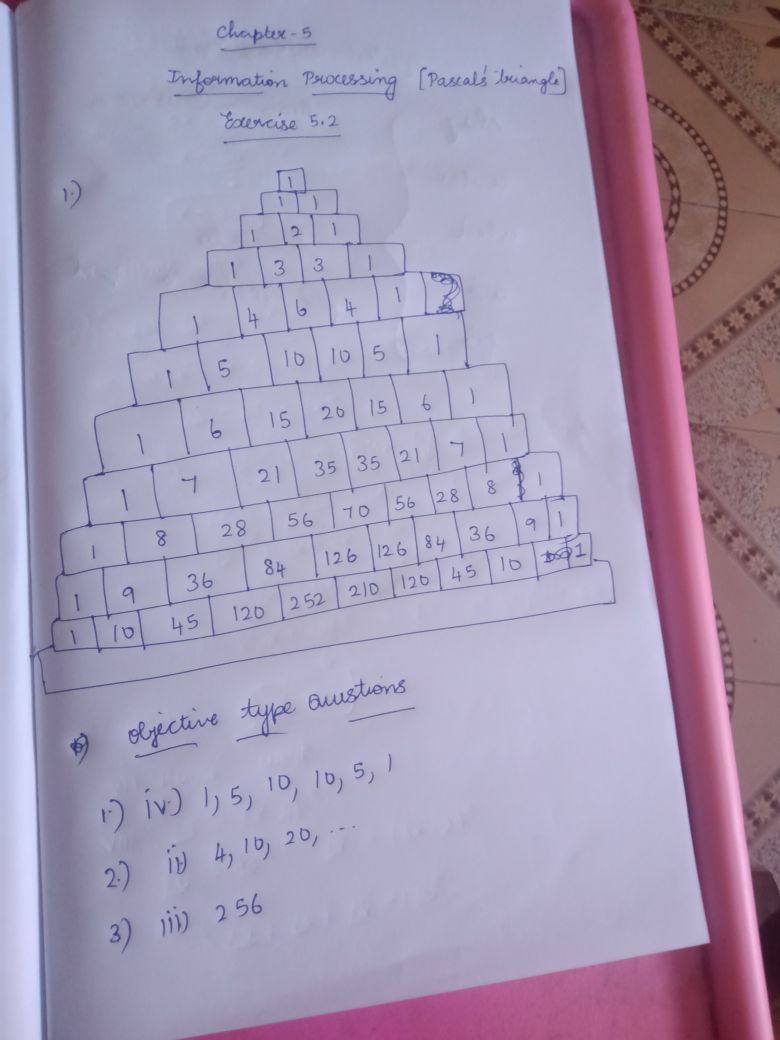 Chapter-5
Information Processing [Pascal's triangle]
Exercise 5.2
1.)
1
1 1
1 2 1
1 3 3 1
1 4 6 4 1
1 5 10 10 5 1
1 6 15 20 15 6 1
1 7 21 35 35 21 7 1
1 8 28 56 70 56 28 8 1
1 9 36 84 126 126 84 36 9 1
1 10 45 120 252 210 120 45 10 1
objective type questions
1.) iv.) 1, 5, 10, 10, 5, 1
2.) ii) 4, 10, 20, ...
3) iii) 256